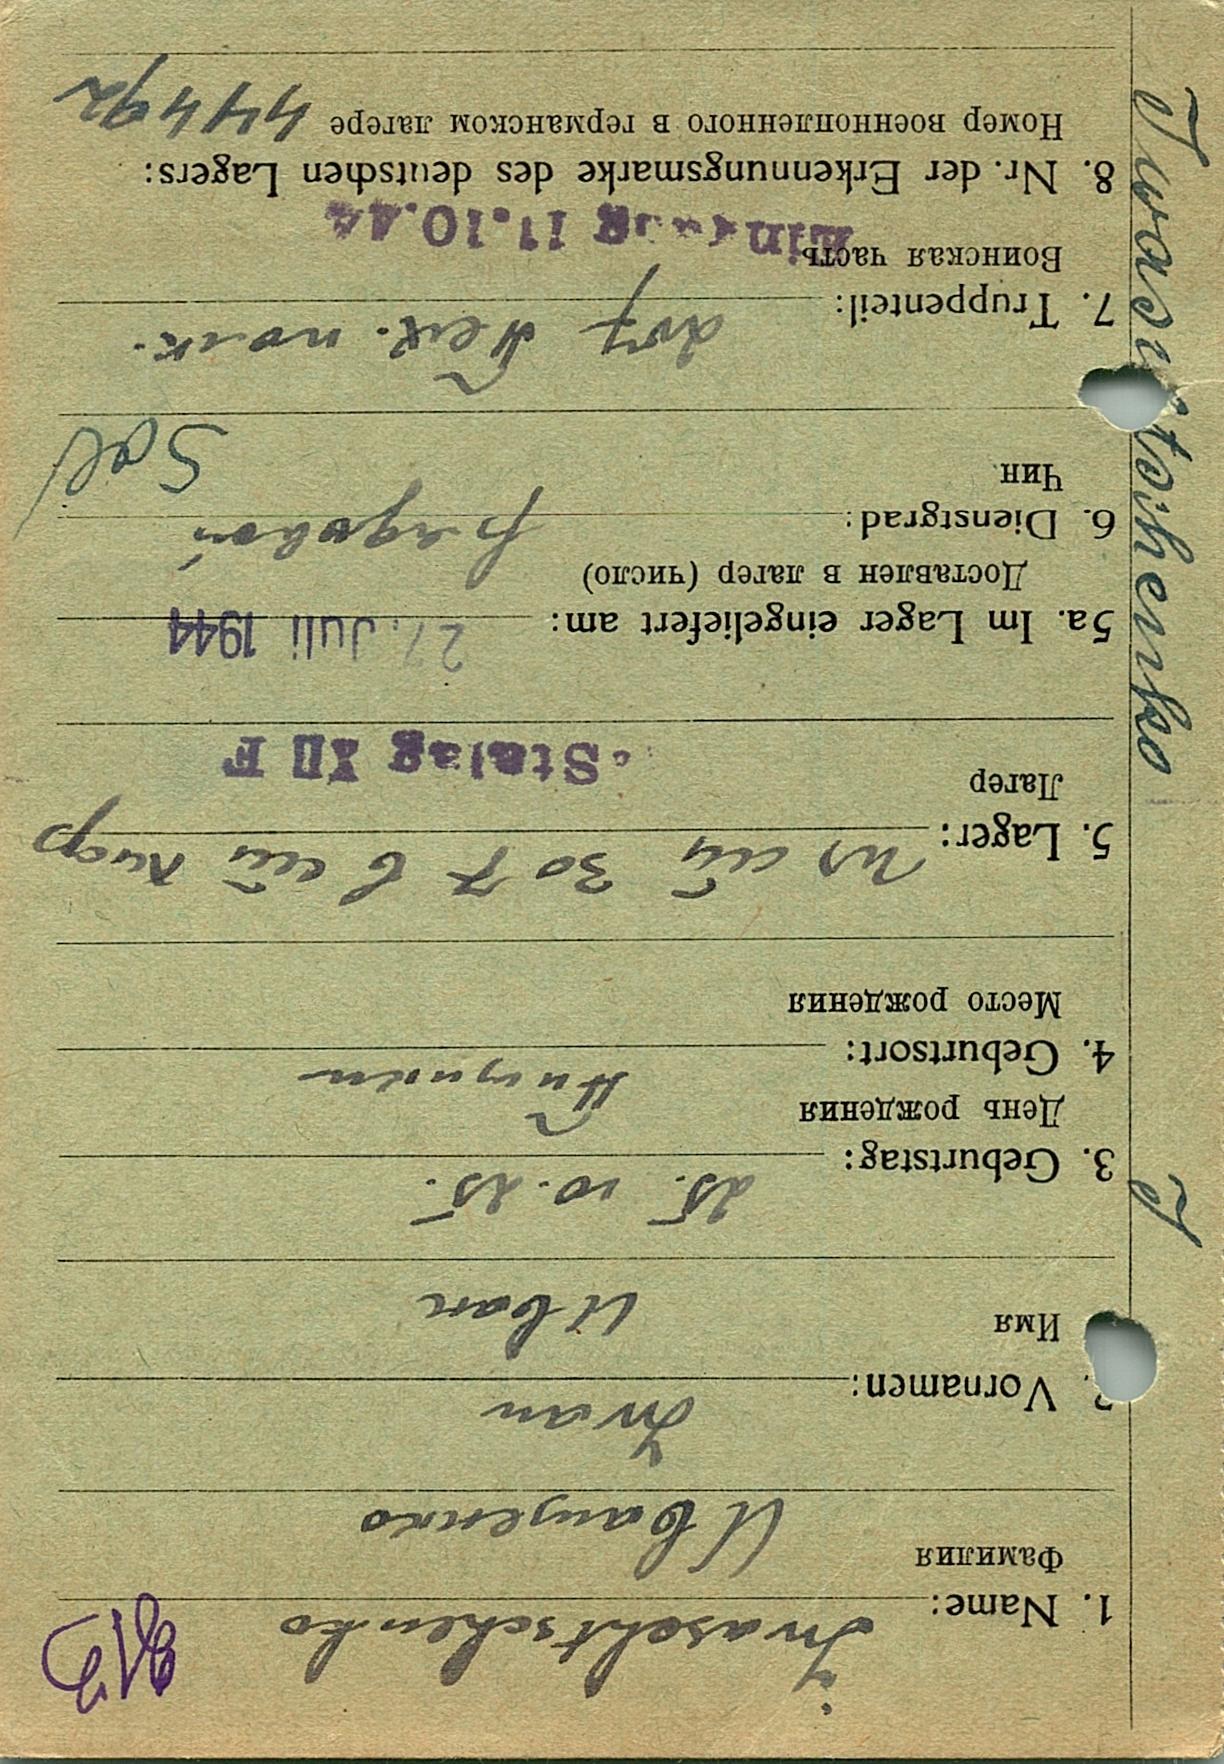 Iwaschtschenko
1. Name:
Фамилия
Иващенко
Iwan
2. Vornamen:
Имя
Иван
25. 10. 25.
3. Geburtstag:
День рождения
4. Geburtsort:
Место рождения
307
5. Lager:
Лагер
Stalag XII F
27. Juli 1944
5a. Im Lager eingeliefert am:
Доставлен в лагер (число)
рядовой
6. Dienstgrad:
Чин
Sol
7. Truppenteil:
Воинская часть
11.10.44
8. Nr. der Erkennungsmarke des deutschen Lagers:
Номер военнопленного в германском лагере 44492
I